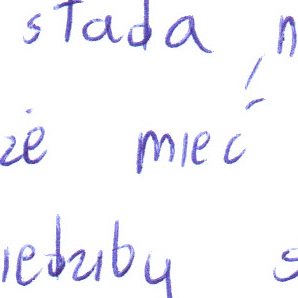 stada n
że mieć
iedziby s